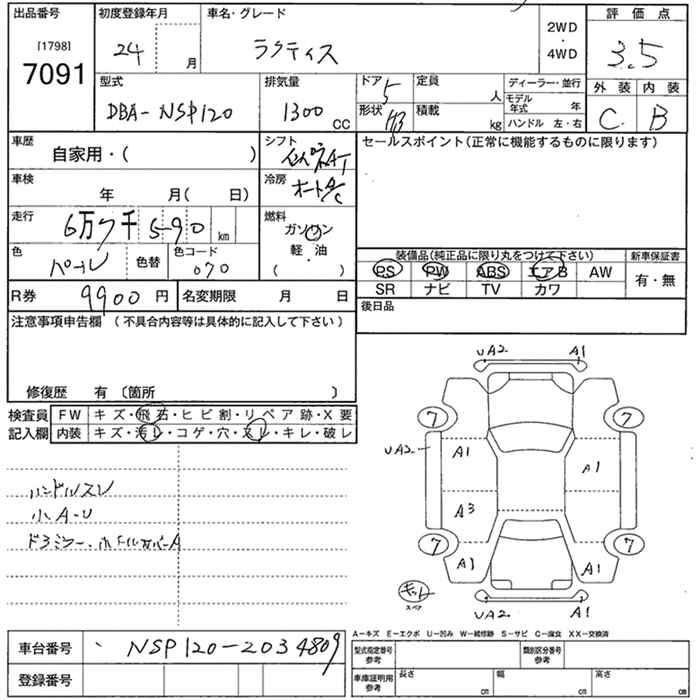 出品番号 初度登録年月 車名・グレード 2WD・4WD 評価点
[1798]
7091 24 月 ラクティス 3.5
型式 排気量 ドア 5 定員 人 ディーラー・並行 外装 内装
DBA-NSP120 1300 CC 形状 HB 積載 kg モデル年式 年 C B
ハンドル 左・右
車歴 自家用・( ) シフト AT セールスポイント(正常に機能するものに限ります)
車検 年 月( 日) 冷房 オートA/C
走行 6万7千590 km 燃料 ガソリン
軽・油
( )
色 パール 色替 色コード 070
装備品(純正品に限り丸をつけて下さい) 新車保証書
PS PW ABS エアB AW 有・無
SR ナビ TV カワ
R券 9900 円 名変期限 月 日 後日品
注意事項申告欄 (不具合内容等は具体的に記入して下さい)
修復歴 有 〔箇所 〕
検査員 FW キズ・飛石・ヒビ割・リペア跡・X要
記入欄 内装 キズ・汚レ・コゲ・穴・スレ・キレ・破レ
UA2 A1
7 7
UA2 A1 A1
A3
7 7
A1 A1
キット
スペア
UA2 A1
ハンドルスレ
小A-U
ドアミラー・ホイールカバーA
A-キズ E-エクボ U-凹み W-補修跡 S-サビ C-腐食 XX-交換済
車台番号 NSP120-2034809 型式指定番号 参考 類別区分番号 参考
登録番号 車庫証明用 参考 長さ cm 幅 cm 高さ cm